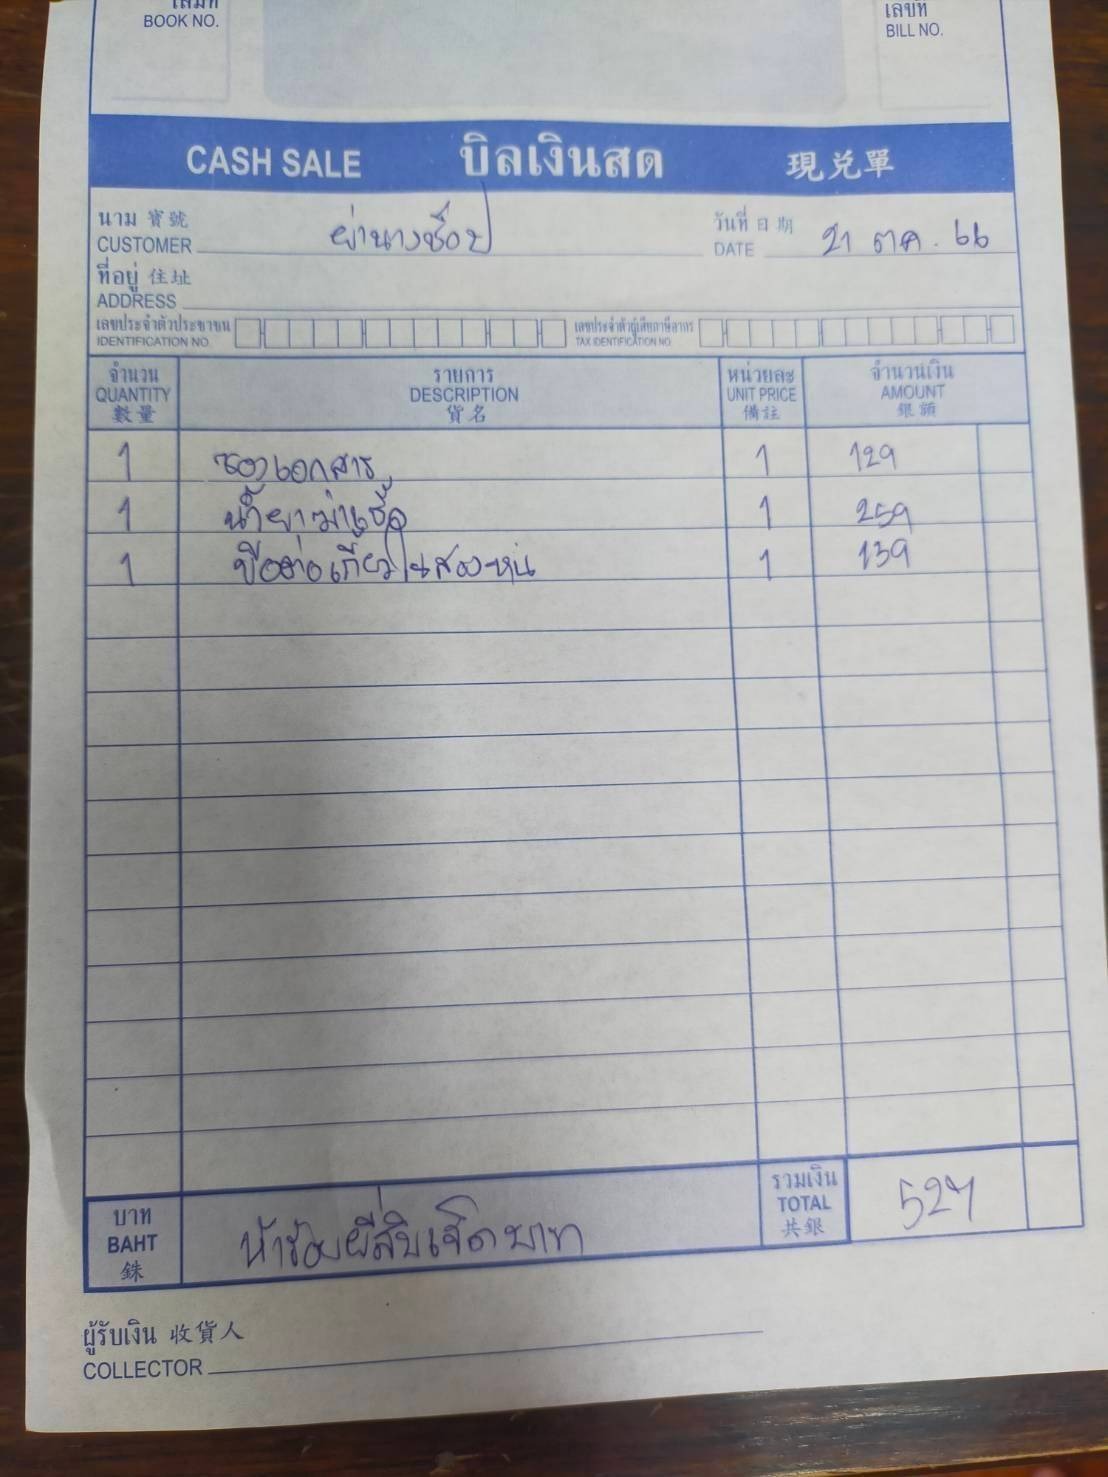 เล่มที่
BOOK NO.
เลขที่
BILL NO.
CASH SALE บิลเงินสด 現兌單
นาม 寶號
CUSTOMER ผ่านางช็อป
วันที่ 日期
DATE 21 ตค. 66
ที่อยู่ 住址
ADDRESS
เลขประจำตัวประชาชน
IDENTIFICATION NO.
เลขประจำตัวผู้เสียภาษีอากร
TAX IDENTIFICATION NO.
จำนวน รายการ หน่วยละ จำนวนเงิน
QUANTITY DESCRIPTION UNIT PRICE AMOUNT
數量 貨名 備註 銀額
1 ซองเอกสาร 1 129
1 น้ำยาฆ่าเชื้อ 1 259
1 1 139
บาท
BAHT
銖
ห้าร้อยยี่สิบเจ็ดบาท
รวมเงิน
TOTAL
共銀
527
ผู้รับเงิน 收貨人
COLLECTOR